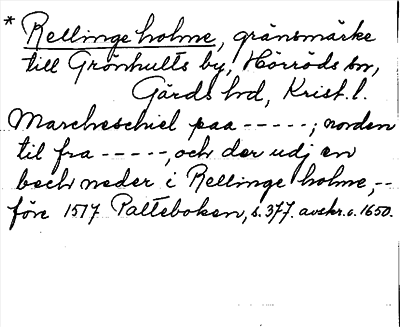 * Rellinge holme, gränsmärke
till Grönhults by, Hörröds sn,
Gärds hd, Krist. l.
Marcheschiel paa -----; norden
til fra -----, och der udj en
bech neder i Rellinge holme, --
före 1517 Palteboken, s. 377. avskr. c. 1650.